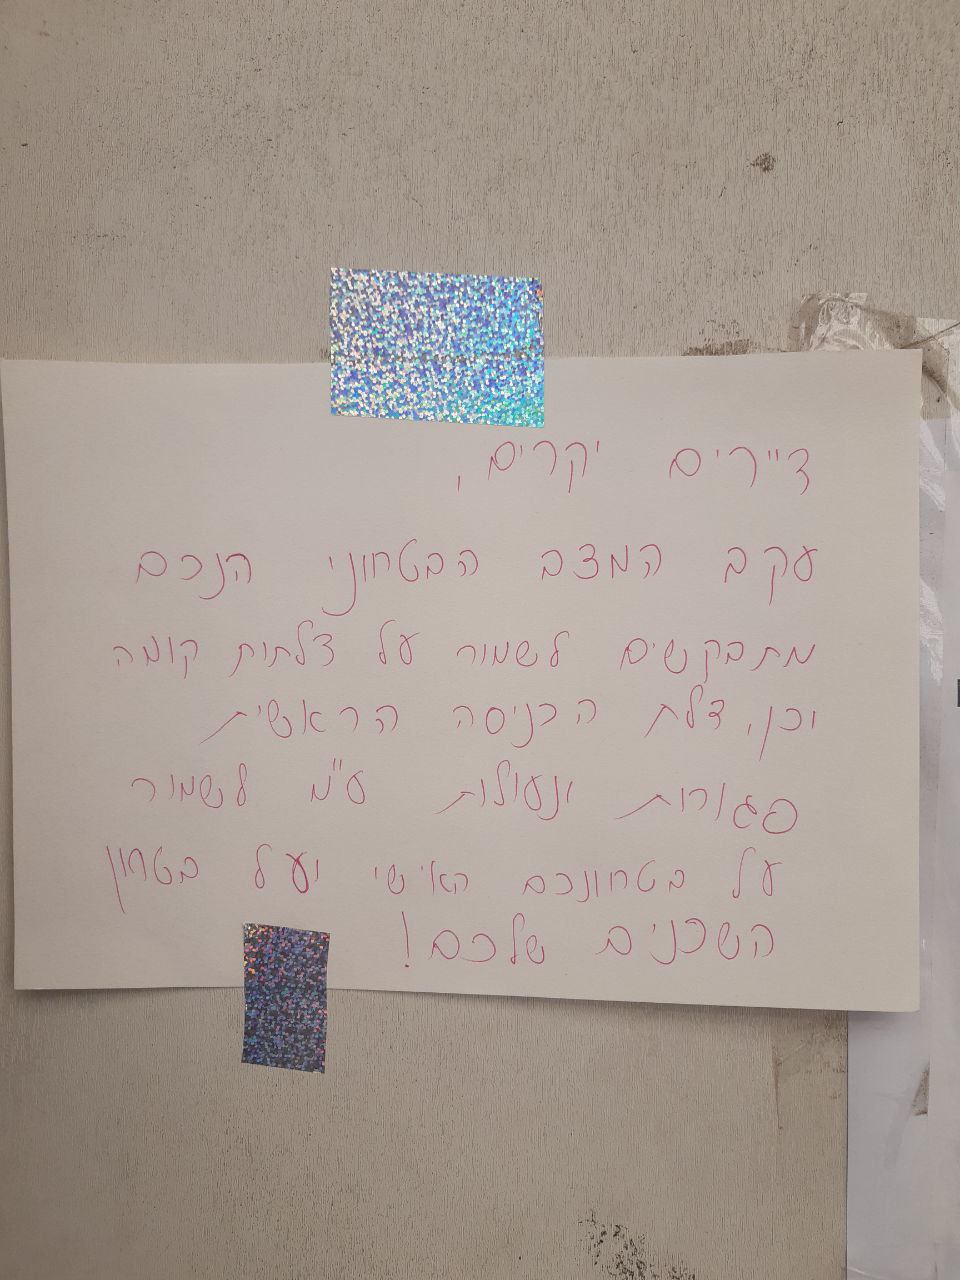 דיירים יקרים,
עקב המצב הבטחוני הנכם
מתבקשים לשמור על דלתות קומה
וכן, דלת הכניסה הראשית
סגורות ונעולות ע"מ לשמור
על בטחונכם האישי ועל בטחון
השכנים שלכם!